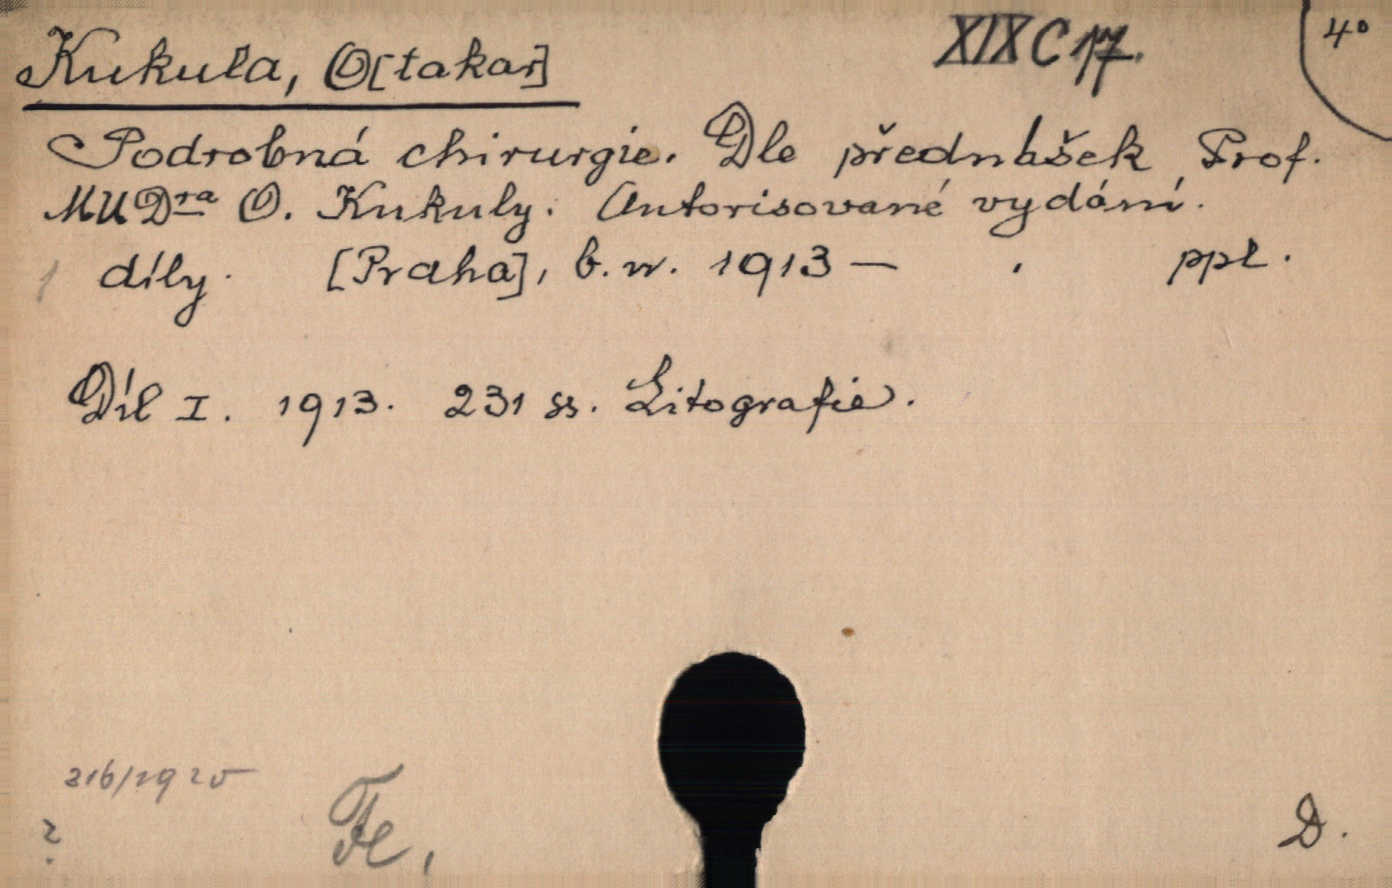 XIX C 17.
4°
Kukula, O[takar]
Podrobná chirurgie. Dle přednášek Prof.
MUDra O. Kukuly. Autorisované vydání.
1 díly. [Praha], b. n. 1913 — . ppl.
Díl I. 1913. 231 ss. Litografie.
316/1925
?
D.